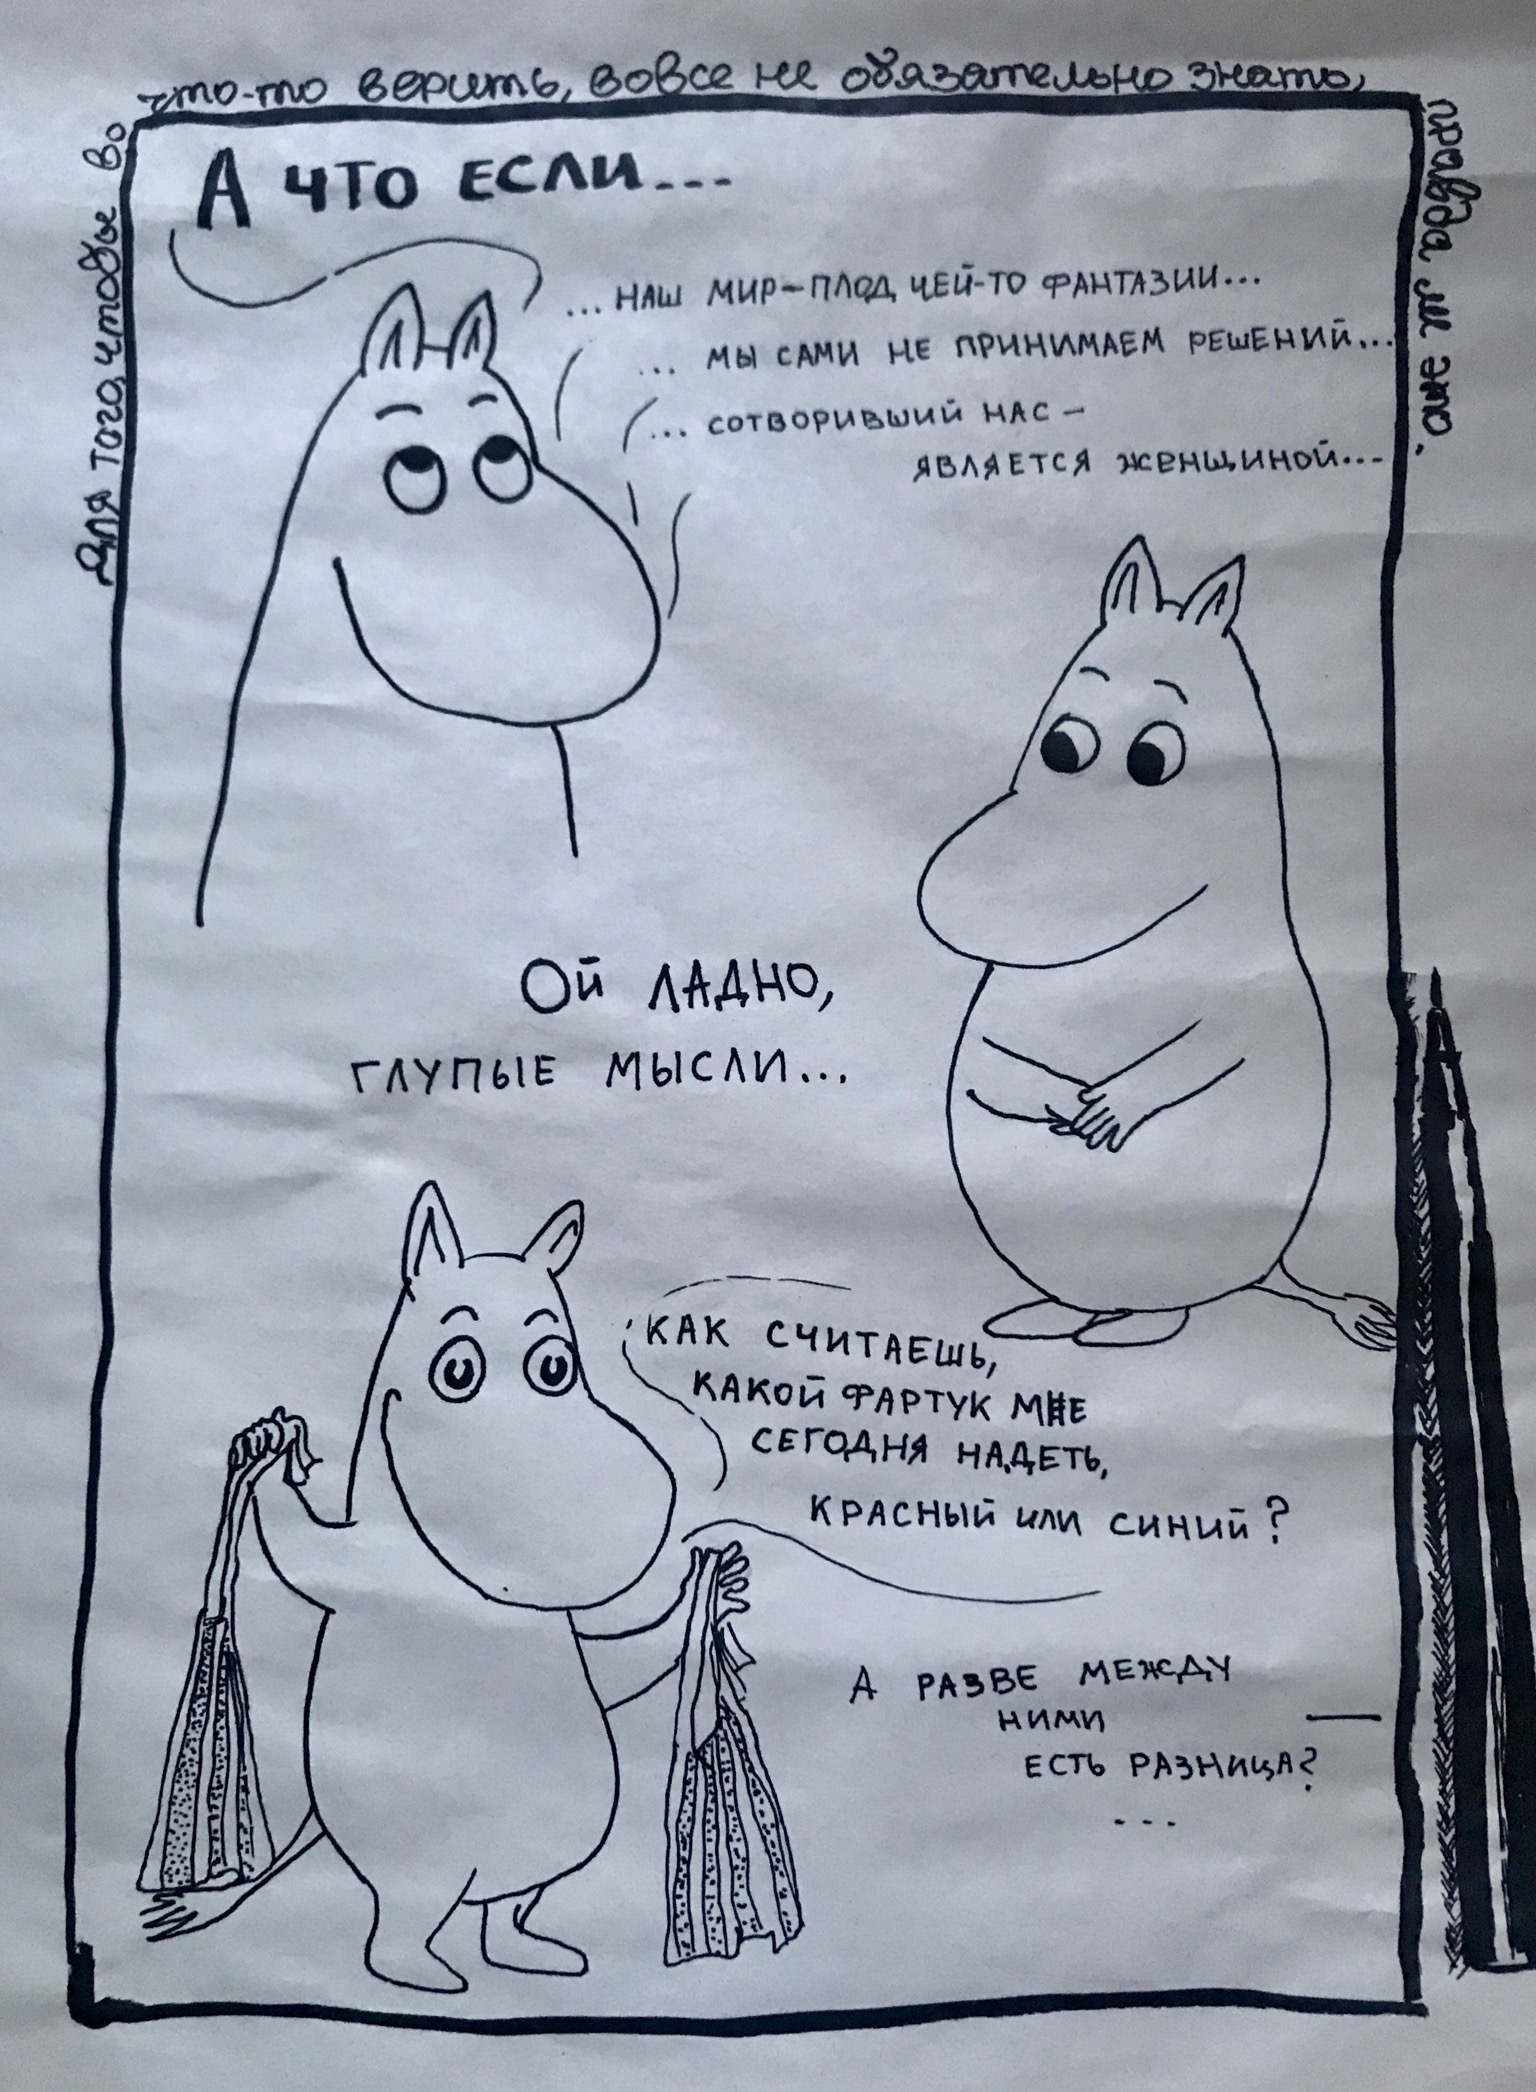 Для того, чтобы во
что-то верить, вовсе не обязательно знать,
правда ли это.
А ЧТО ЕСЛИ...
...НАШ МИР-ПЛОД ЧЕЙ-ТО ФАНТАЗИИ...
... МЫ САМИ НЕ ПРИНИМАЕМ РЕШЕНИЙ...
... СОТВОРИВШИЙ НАС -
ЯВЛЯЕТСЯ ЖЕНЩИНОЙ...
ОЙ ЛАДНО,
ГЛУПЫЕ МЫСЛИ...
КАК СЧИТАЕШЬ,
КАКОЙ ФАРТУК МНЕ
СЕГОДНЯ НАДЕТЬ,
КРАСНЫЙ ИЛИ СИНИЙ?
А РАЗВЕ МЕЖДУ
НИМИ
ЕСТЬ РАЗНИЦА?
...